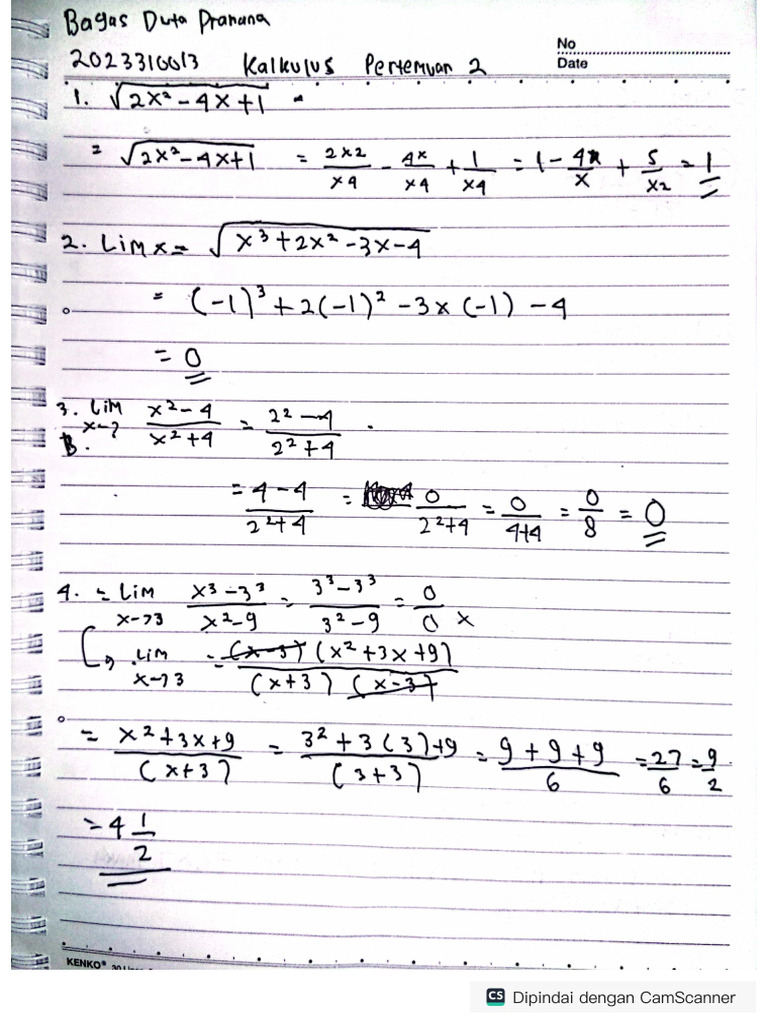 Bagas Duta Pranana
No
2023310013 Kalkulus Pertemuan 2
Date
1. √2x² - 4x + 1
= √2x² - 4x + 1 = 2x2/x4 - 4x/x4 + 1/x4 = 1 - 4x/x + 5/x2 = 1
2. Lim x = √x³ + 2x² - 3x - 4
= (-1)³ + 2(-1)² - 3x (-1) - 4
= 0
3. Lim x->? x² - 4/x² + 4 = 2² - 4/2² + 4
B.
= 4 - 4/2² + 4 = 0/2² + 4 = 0/4+4 = 0/8 = 0
4. = Lim x->3 x³ - 3³/x² - 9 = 3³ - 3³/3² - 9 = 0/0 x
Lim x->3 = (x-3) (x² + 3x + 9)/(x+3) (x-3)
= x² + 3x + 9/(x+3) = 3² + 3(3) + 9/(3+3) = 9 + 9 + 9/6 = 27/6 = 9/2
= 4 1/2
KENKO®
CS Dipindai dengan CamScanner